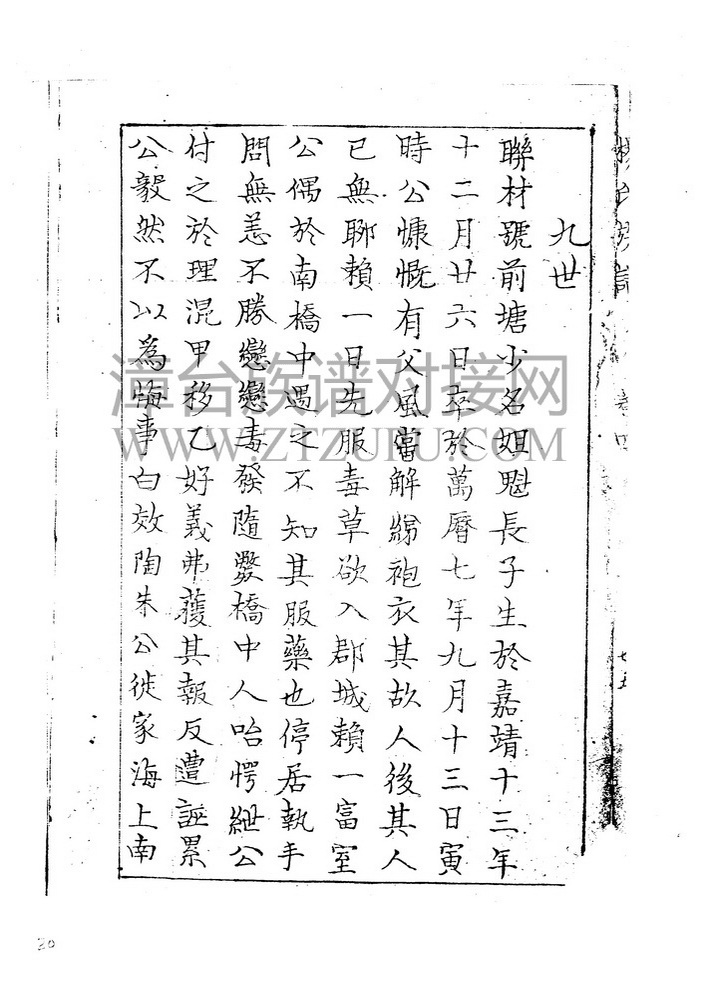 九世
聯材號前塘少名姐魁長子生於嘉靖十三年
十二月廿六日卒於萬曆七年九月十三日寅
時公慷慨有父風嘗解綈袍衣其故人後其人
已無聊賴一日先服毒草欲入郡城賴一富室
公偶於南橋中遇之不知其服藥也停居執手
問無恙不勝戀戀毒發隨斃橋中人咍愕紲公
付之於理混甲移乙好義弗蒦其報反遭誣累
公毅然不以為悔事白效陶朱公徙家海上南
漳台族谱对接网
WWW.ZTZUPU.COM
卷四
七五
20